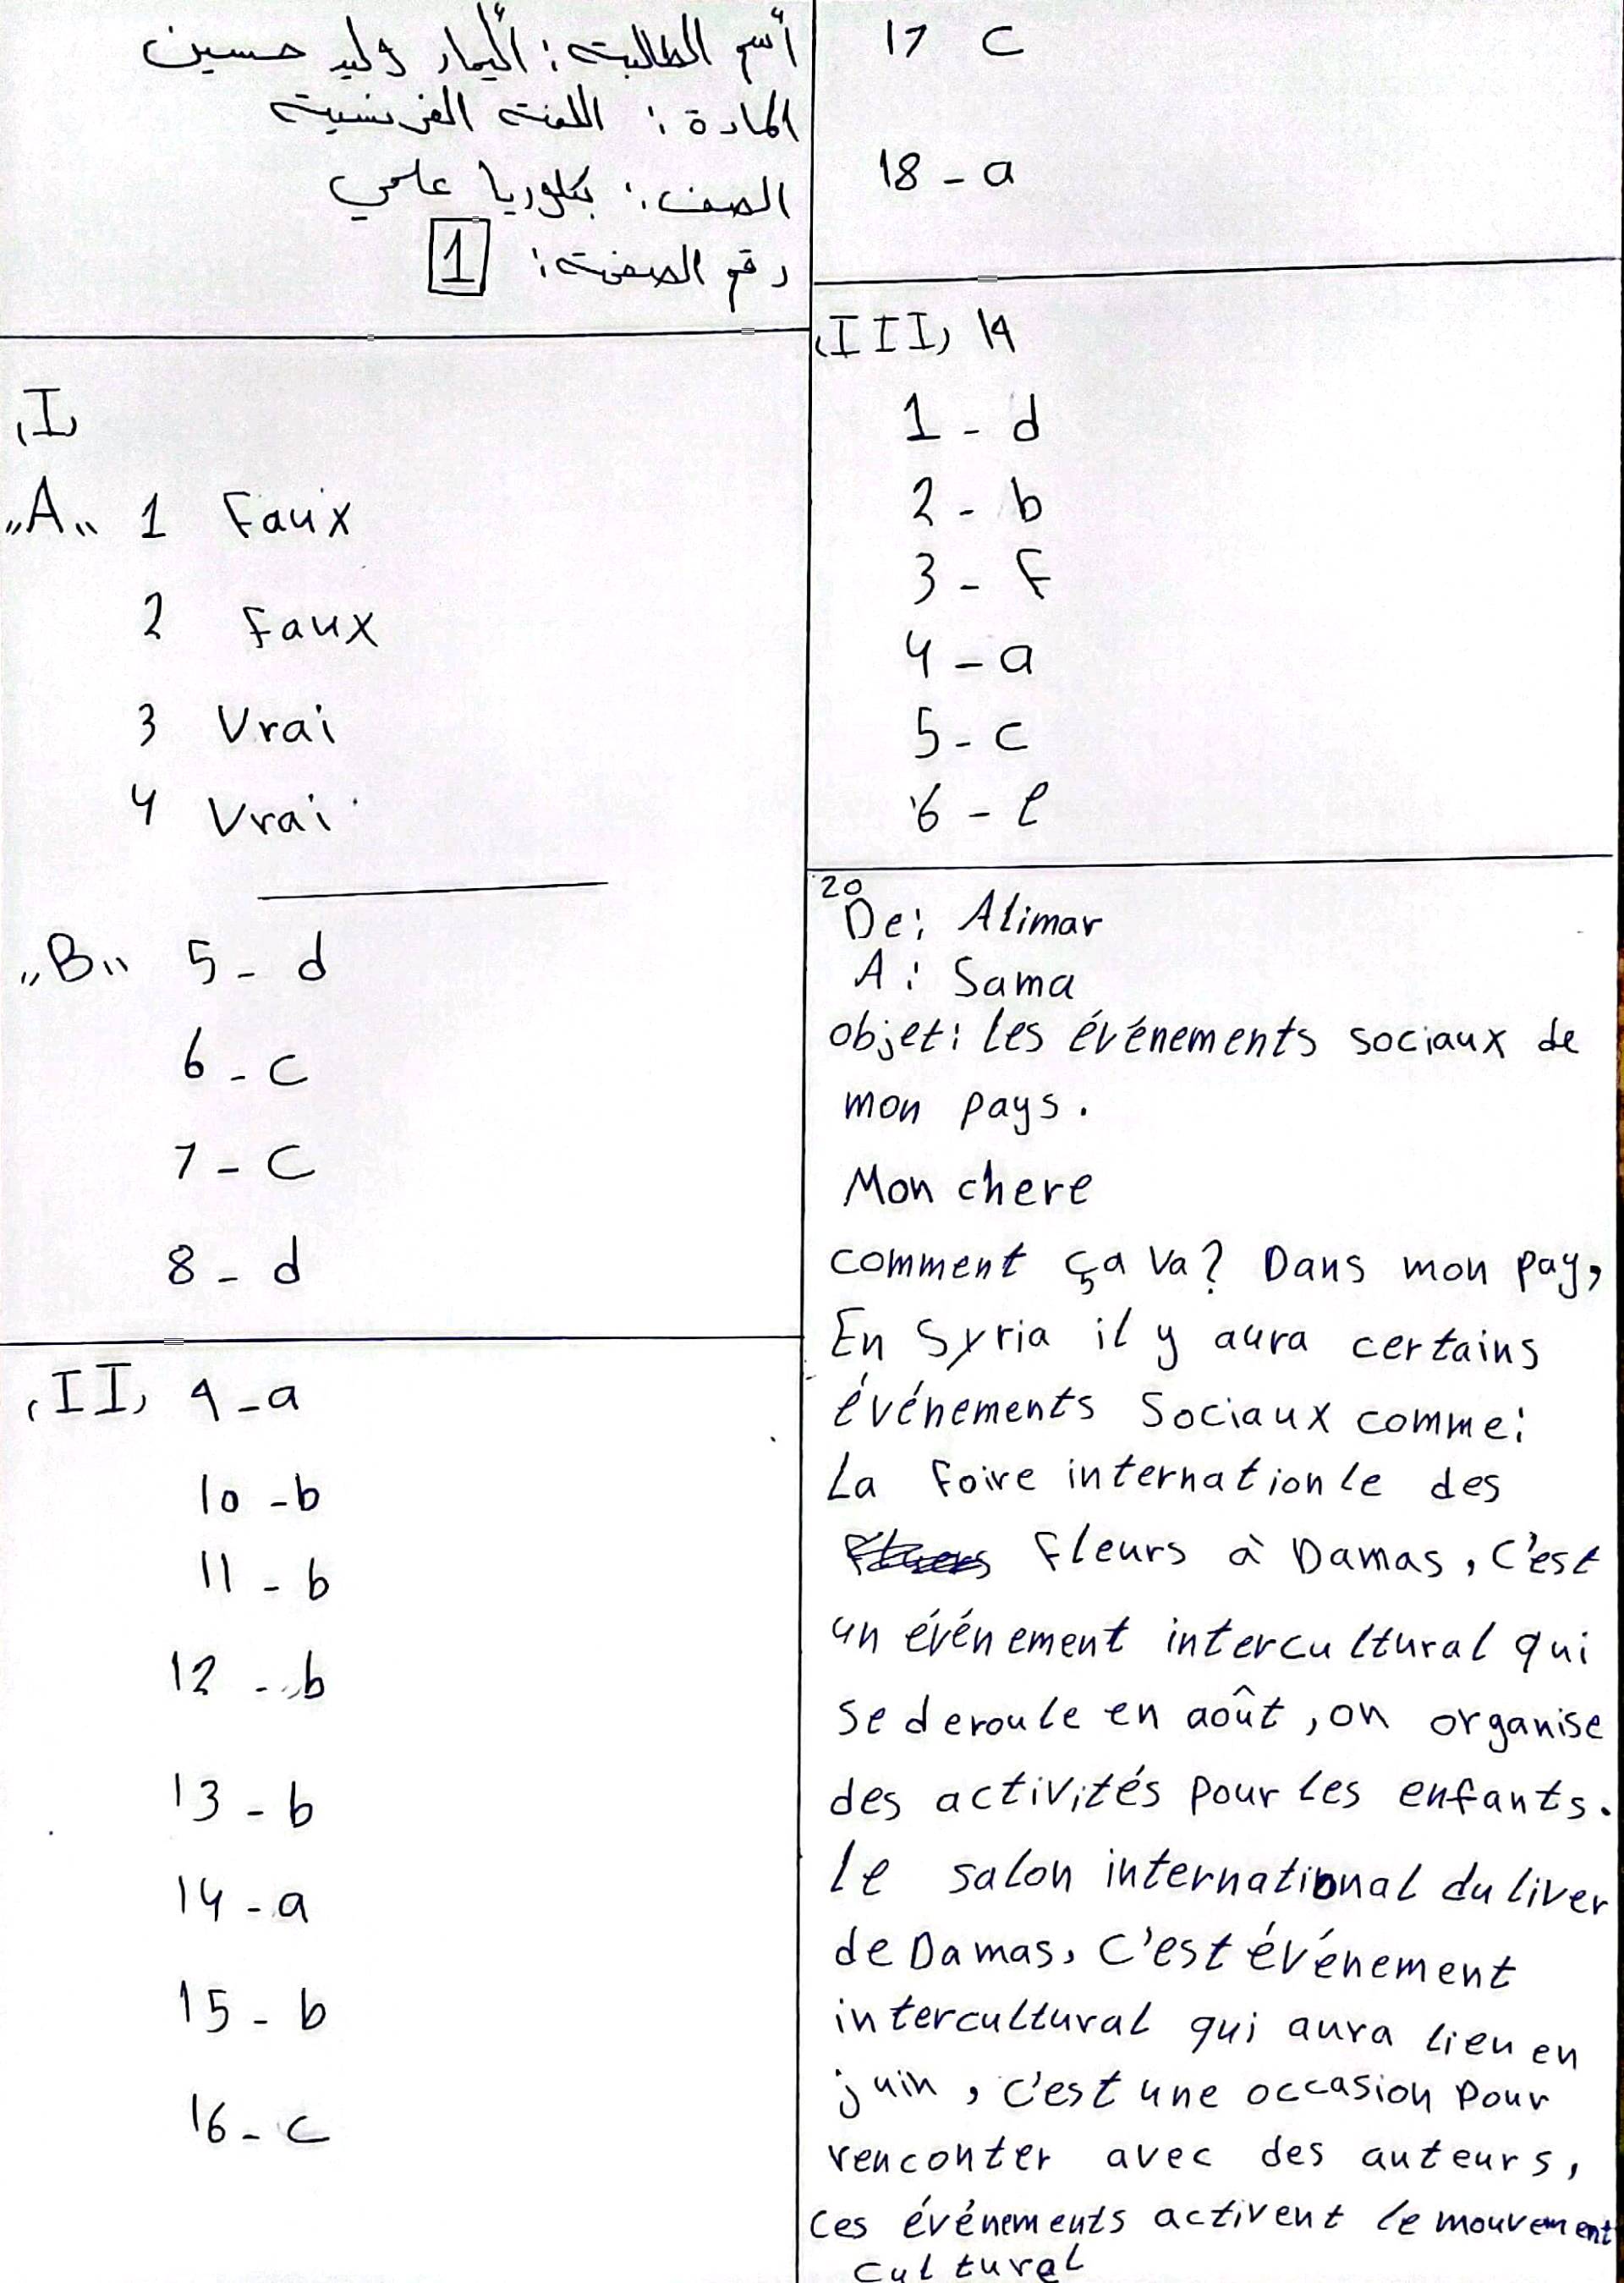 أسم الطالبة: أليمار وليد حسين
المادة: اللغة الفرنسية
الصف: بكلوريا علمي
رقم الصفحة: 1
(I)
"A" 1 Faux
2 Faux
3 Vrai
4 Vrai
"B" 5 - d
6 - c
7 - c
8 - d
(II) 9 - a
10 - b
11 - b
12 - b
13 - b
14 - a
15 - b
16 - c
17 c
18 - a
(III) 19
1 - d
2 - b
3 - F
4 - a
5 - c
6 - e
20
De: Alimar
A: Sama
objet: les événements sociaux de
mon pays.
Mon chere
comment ça va? Dans mon pay,
En Syria il y aura certains
événements Sociaux comme:
La foire internationle des
Fleurs à Damas, C'est
un événement intercultural qui
se deroule en août, on organise
des activités pour les enfants.
le salon international du liver
de Damas, C'est événement
intercultural qui aura lieu en
juin, c'est une occasion pour
renconter avec des auteurs,
ces événements activent le mouvement
cultural